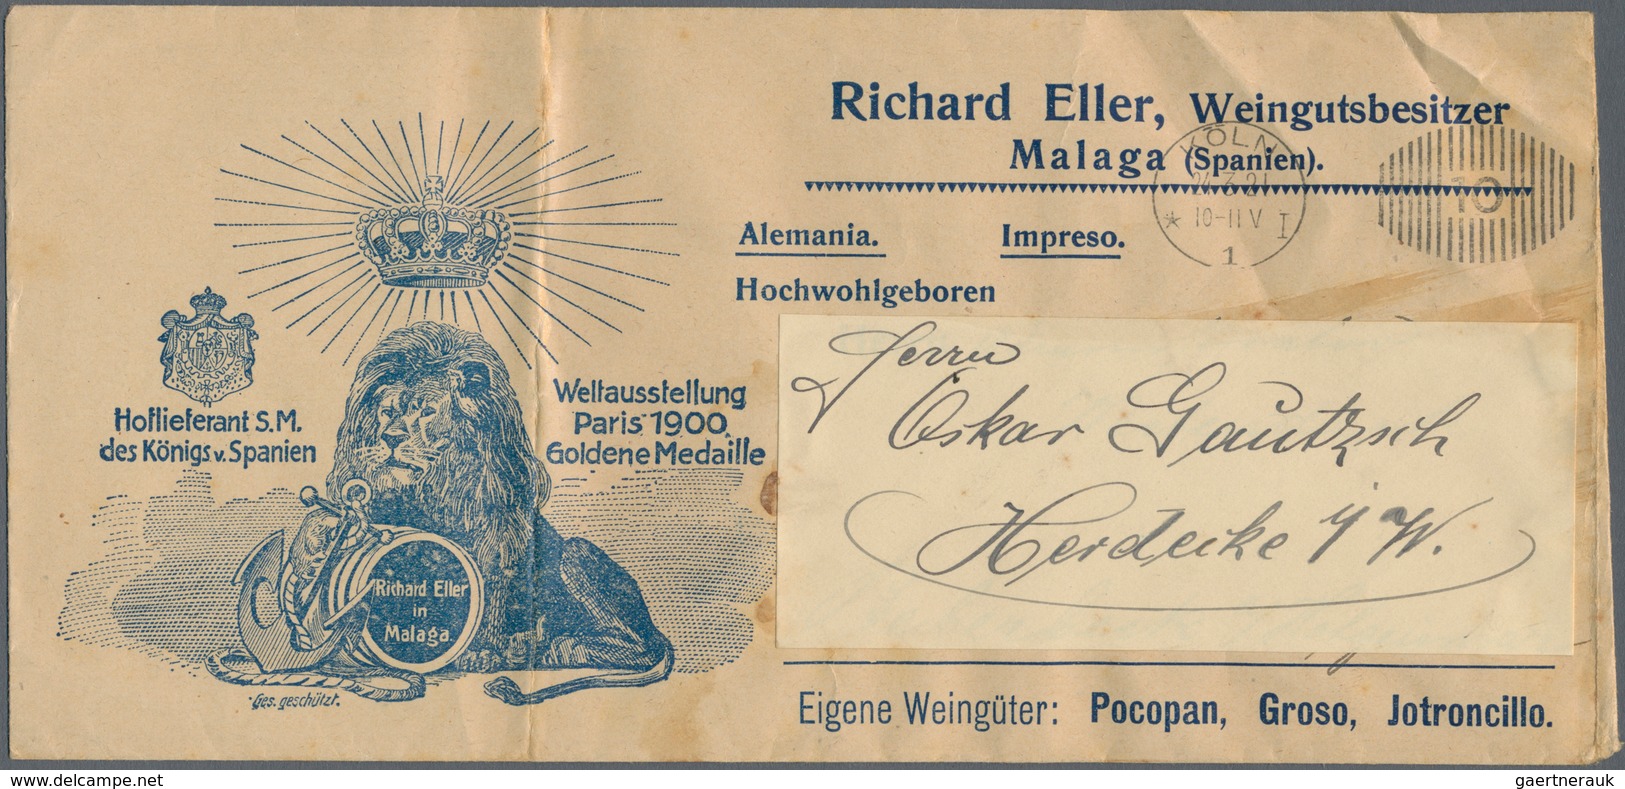 Richard Eller, Weingutsbesitzer
Malaga (Spanien).
KÖLN
24.3.21
10-11 V
* I
1
10
Alemania. Impreso.
Hochwohlgeboren
Herrn
Oskar Gautzsch
Herdecke i/W.
Hoflieferant S.M.
des Königs v. Spanien
Weltausstellung
Paris 1900.
Goldene Medaille
Richard Eller
in
Malaga.
Ges. geschützt.
Eigene Weingüter: Pocopan, Groso, Jotroncillo.
www.delcampe.net
gaertnerauk